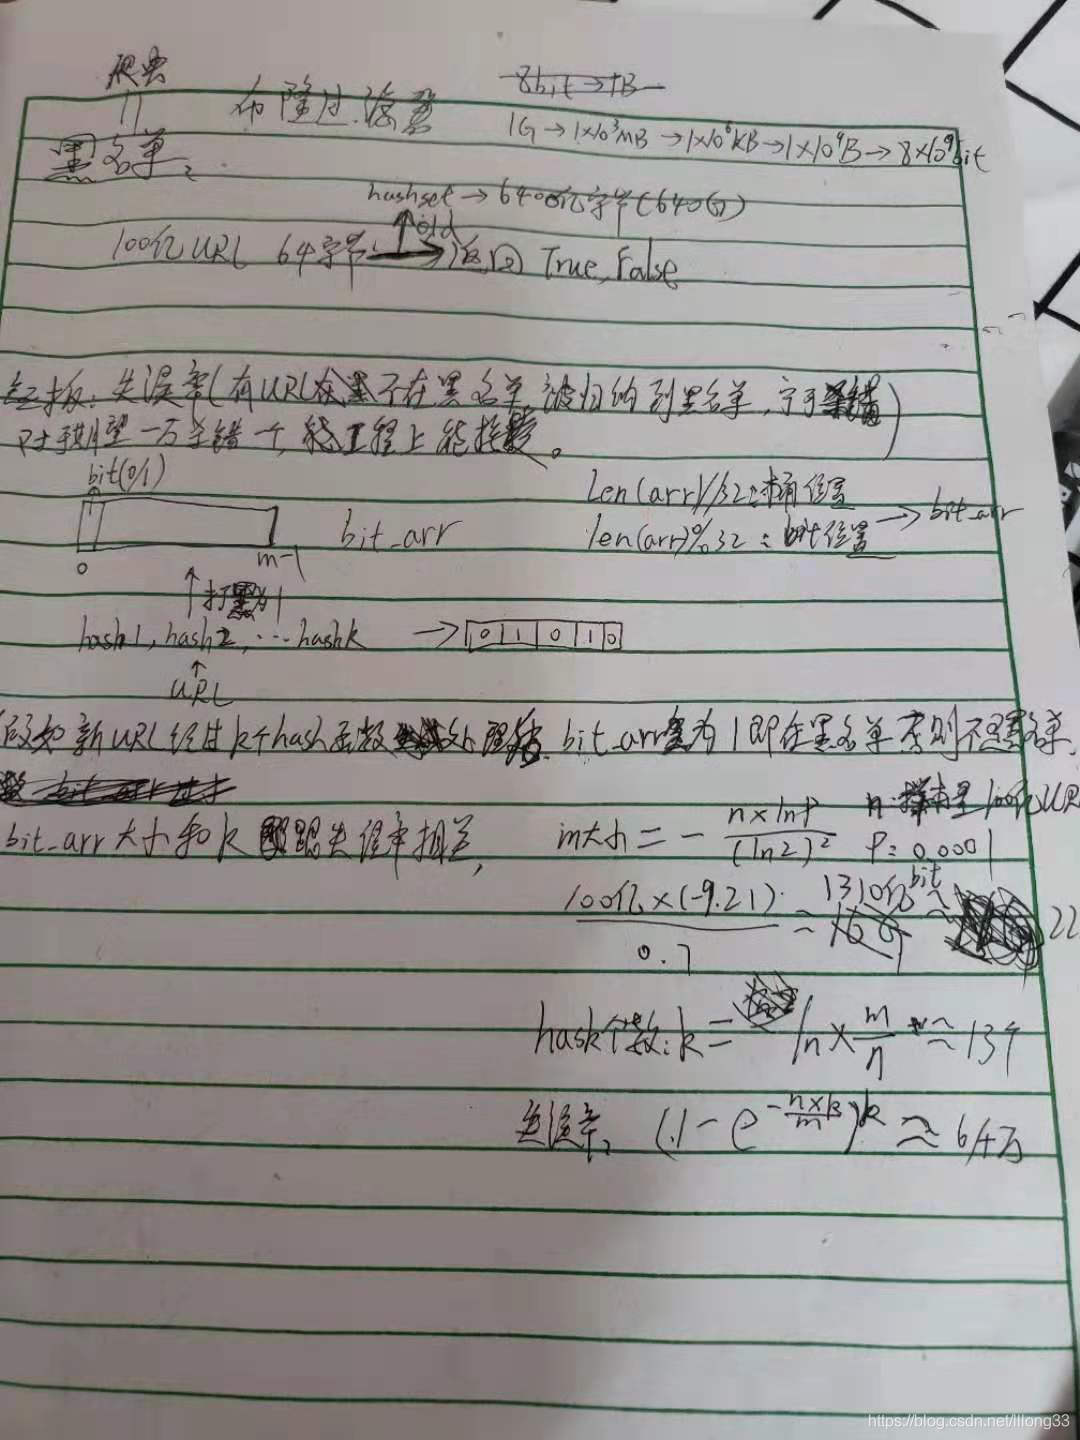 爬虫
8bit→1B
布隆过滤器
1G→1×10³MB→1×10⁶KB→1×10⁹B→8×10⁹bit
黑名单
hashset→6400亿字节(640G)
old
100亿URL 64字节→返回 True, False
失误率(有URL不在黑名单,被归纳到黑名单,宁可杀错)
期望一万杀错一个,工程上能接受。
bit(0/1)
len(arr)//32:桶位置
bit_arr
len(arr)%32:bit位置
→bit_arr
0
m-1
打黑为1
hash1,hash2,…hashk → 0 1 0 1 0
URL
假如新URL经过k个hash函数处理后,bit_arr全为1即在黑名单否则不在黑名单.
bit_arr大小和k跟失误率相关,
m大小=-n×lnP/(ln2)²
n:样本量100亿URL
P=0.0001
100亿×(-9.21)/0.7≈1310亿bit
22
hask个数:k=ln×m/n≈13个
失误率:(1-e^(-n×k/m))^k≈6/十万
https://blog.csdn.net/lllong33